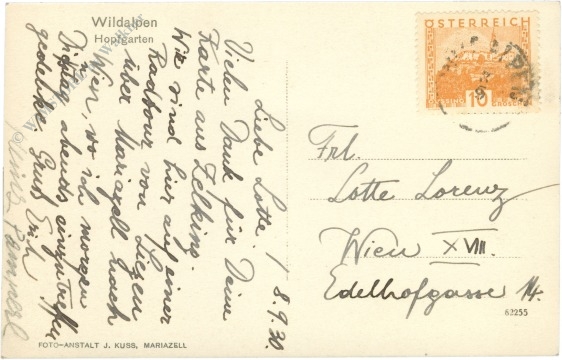 Wildalpen
Hopfgarten
8.9.30.
Liebe Lotte!
Vielen Dank für Deine
Karte aus Zelking.
Wir sind hier auf einer
Radtour von Liezen
über Mariazell nach
Wien, wo ich morgen
Dienstag abends einzutreffen
gedenke. Gruß Erich
FOTO-ANSTALT J. KUSS, MARIAZELL
ÖSTERREICH
10
GROSCHEN
Frl.
Lotte Lorenz
Wien XVIII.
Edelhofgasse 14.
62255